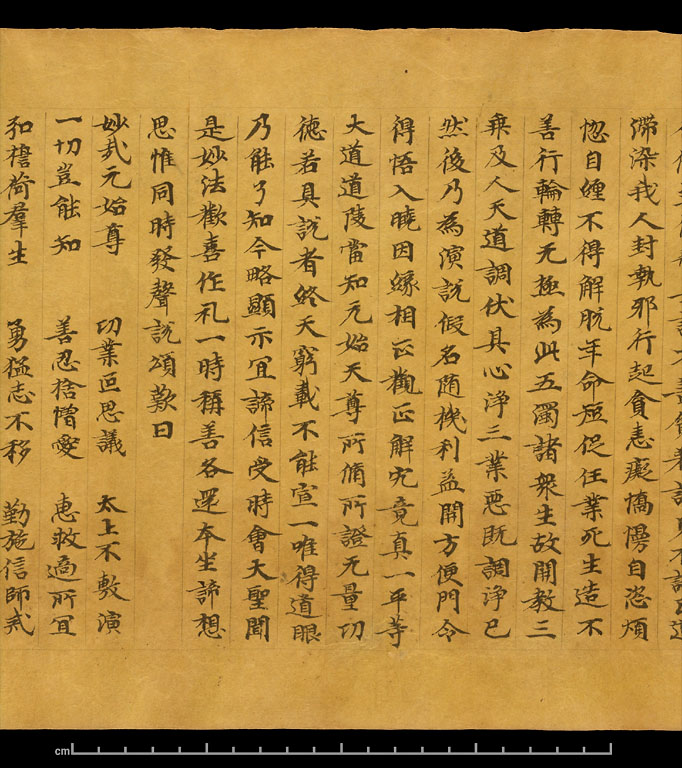 滯染我人封執邪行起貪恚癡憍慢自恣煩
惚自纏不得解脫年命短促任業死生造不
善行輪轉无極為此五濁諸衆生故開教三
乘及人天道調伏其心淨三業惡既調淨已
然後乃為演說假名随機利益開方便門令
得悟入曉因緣相正觀正解究竟真一平等
大道道陵當知元始天尊所脩所證无量功
德若具說者終天窮載不能宣一唯得道眼
乃能了知今略顯示宜諦信受時會大聖聞
是妙法歡喜作礼一時稱善各還本坐諦想
思惟同時發聲說頌歎曰
妙哉元始尊 功業叵思議 太上不敷演
一切豈能知 善忍捨憎愛 惠救適所宜
荷羣生 勇猛志不移 勤施信師戒
cm